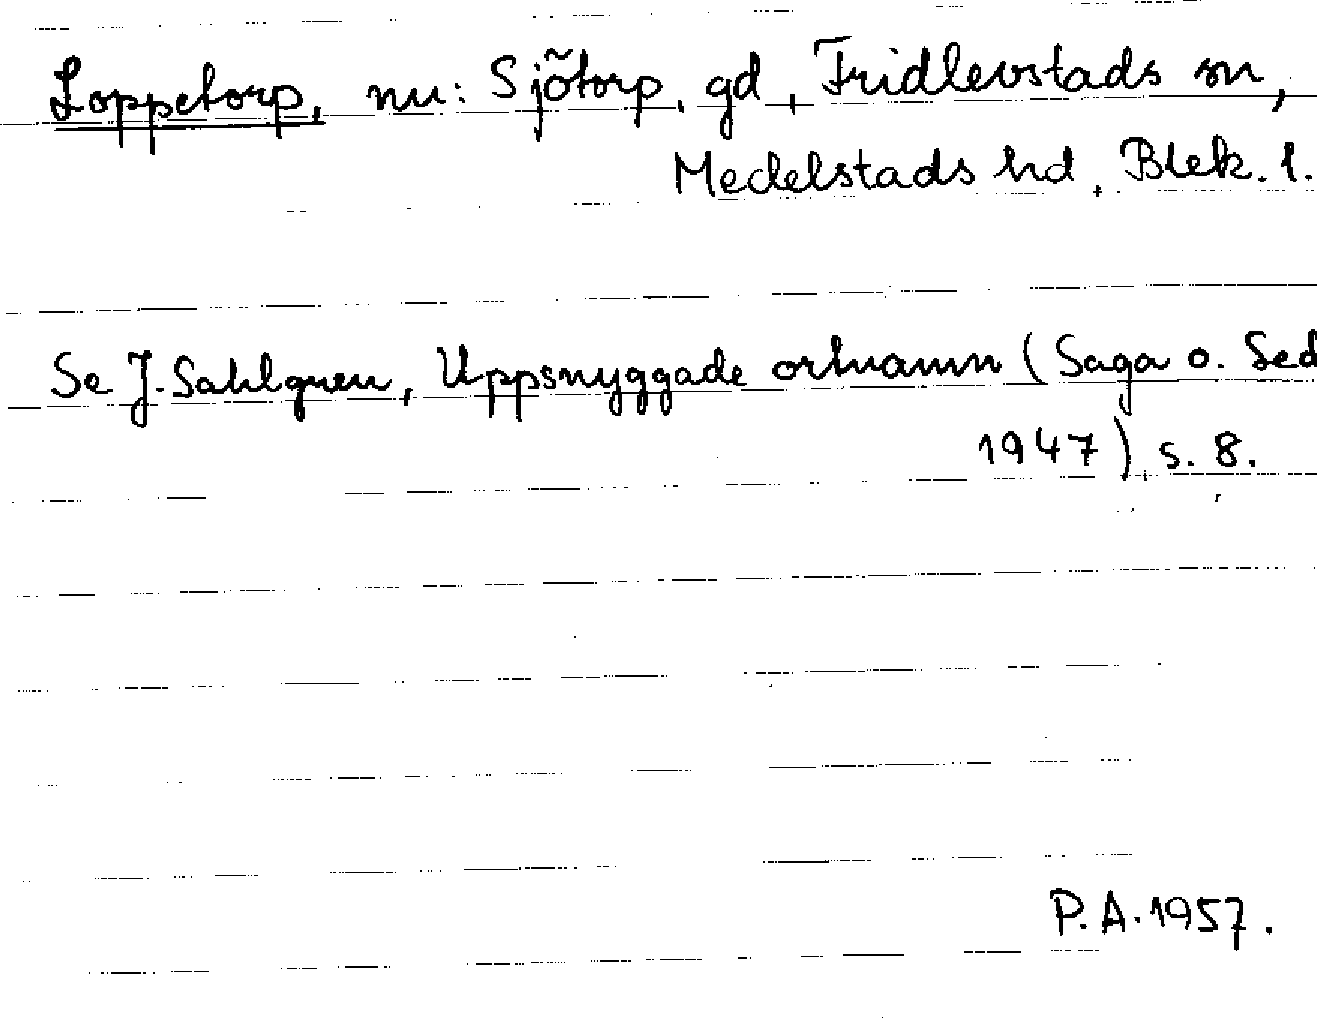 Loppetorp, nu: Sjötorp, gd, Fridlevstads sn,
Medelstads hd, Blek. l.
Se J. Sahlgren, Uppsnyggade ortnamn (Saga o. Sed
1947), s. 8.
P.A. 1957.